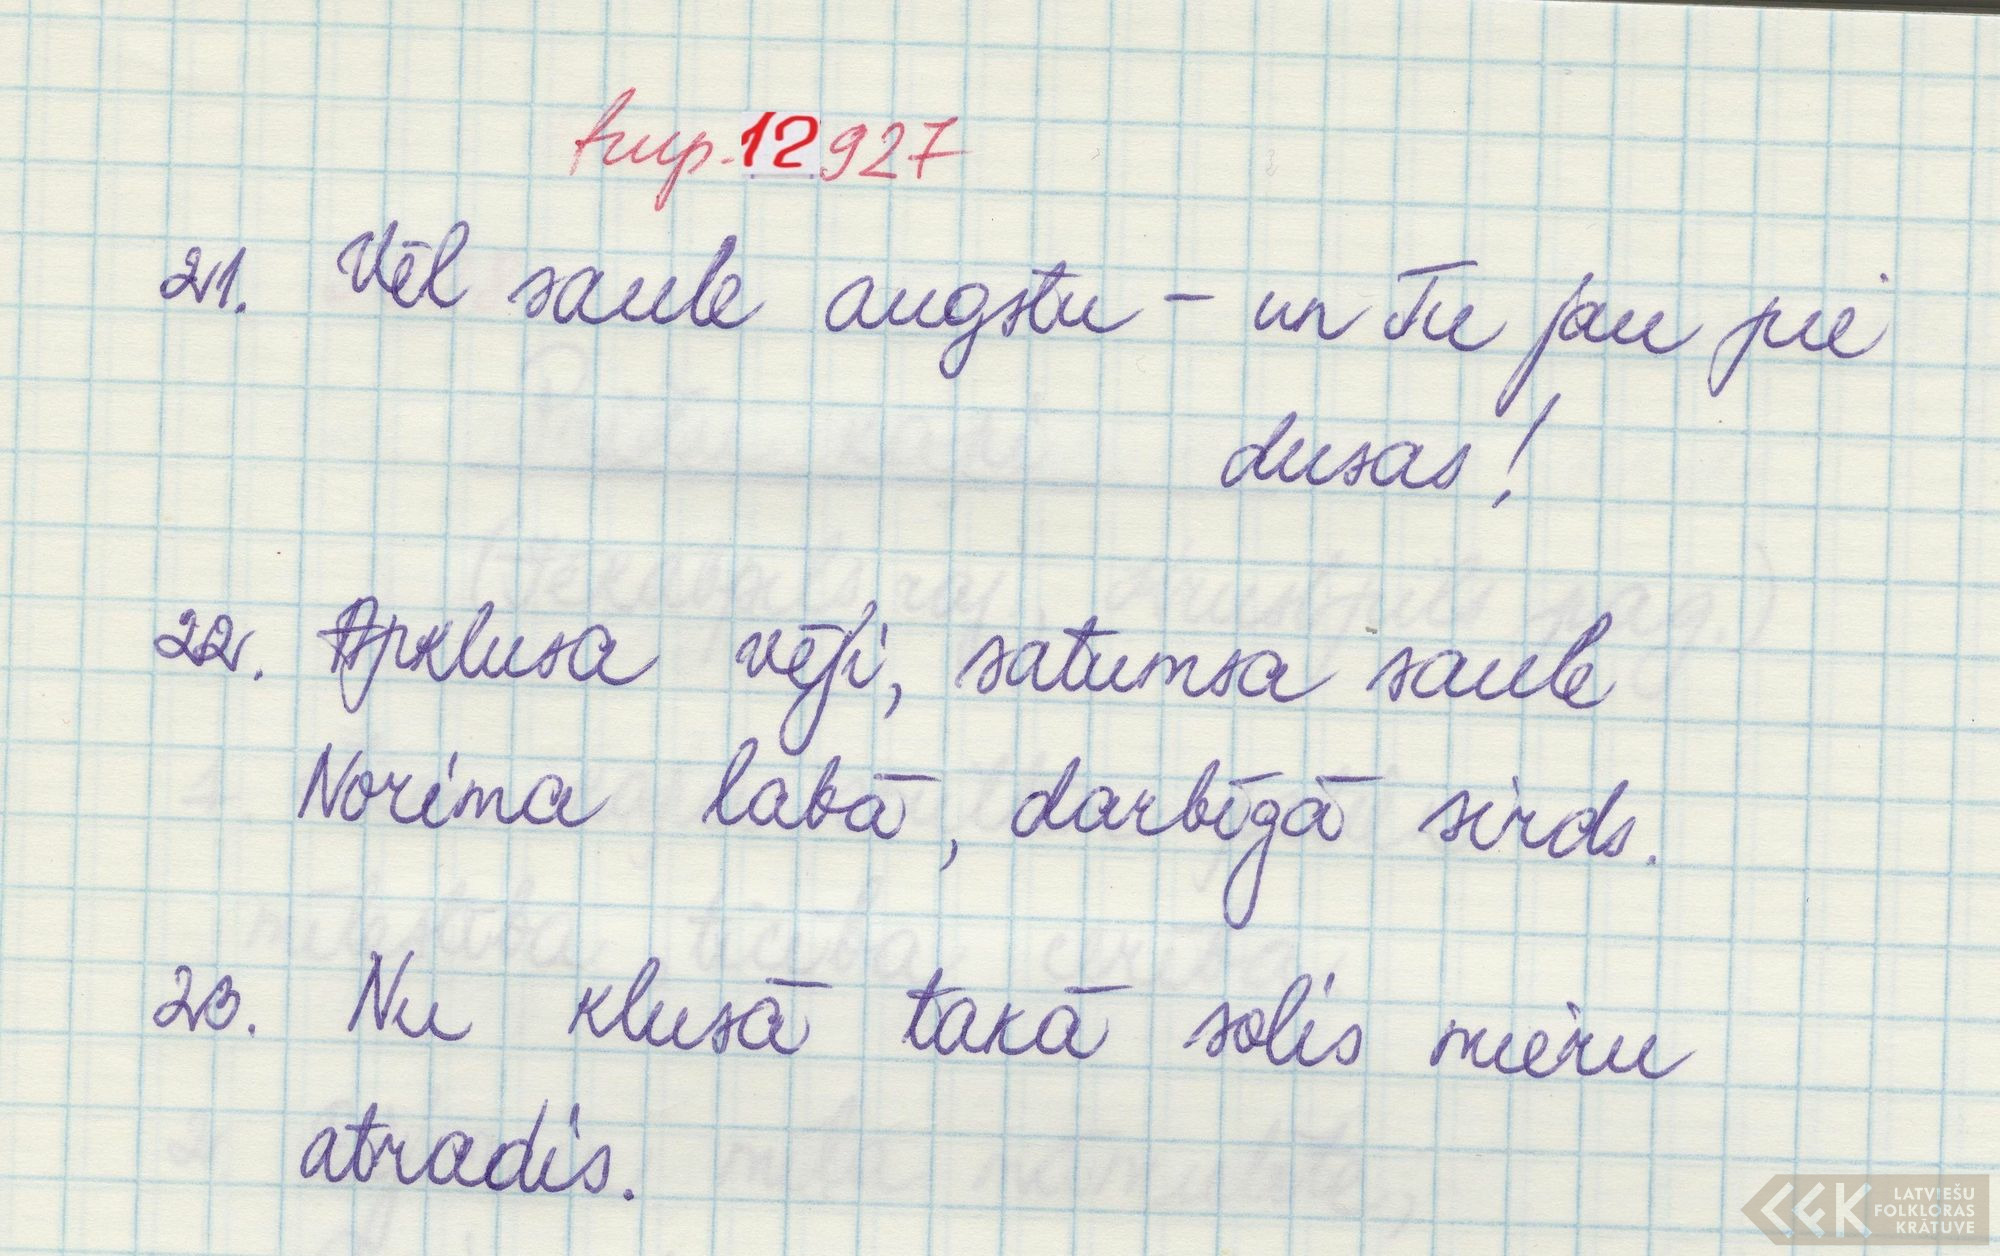 12927
21. Vēl saule augstu – un Tu jau pie
dusas!
22. Apklusa vēji, satumsa saule
Norima labā, darbīgā sirds.
23. Nu klusā takā solis mieru
atradis.
LATVIEŠU
FOLKLORAS
KRĀTUVE